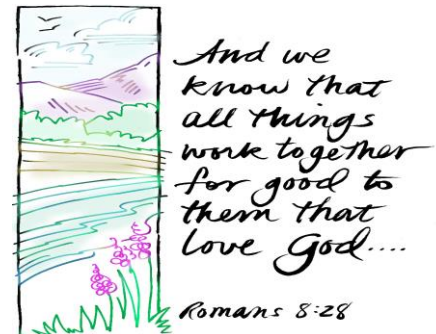 And we
know that
all things
work together
for good to
them that
love God....
Romans 8:28